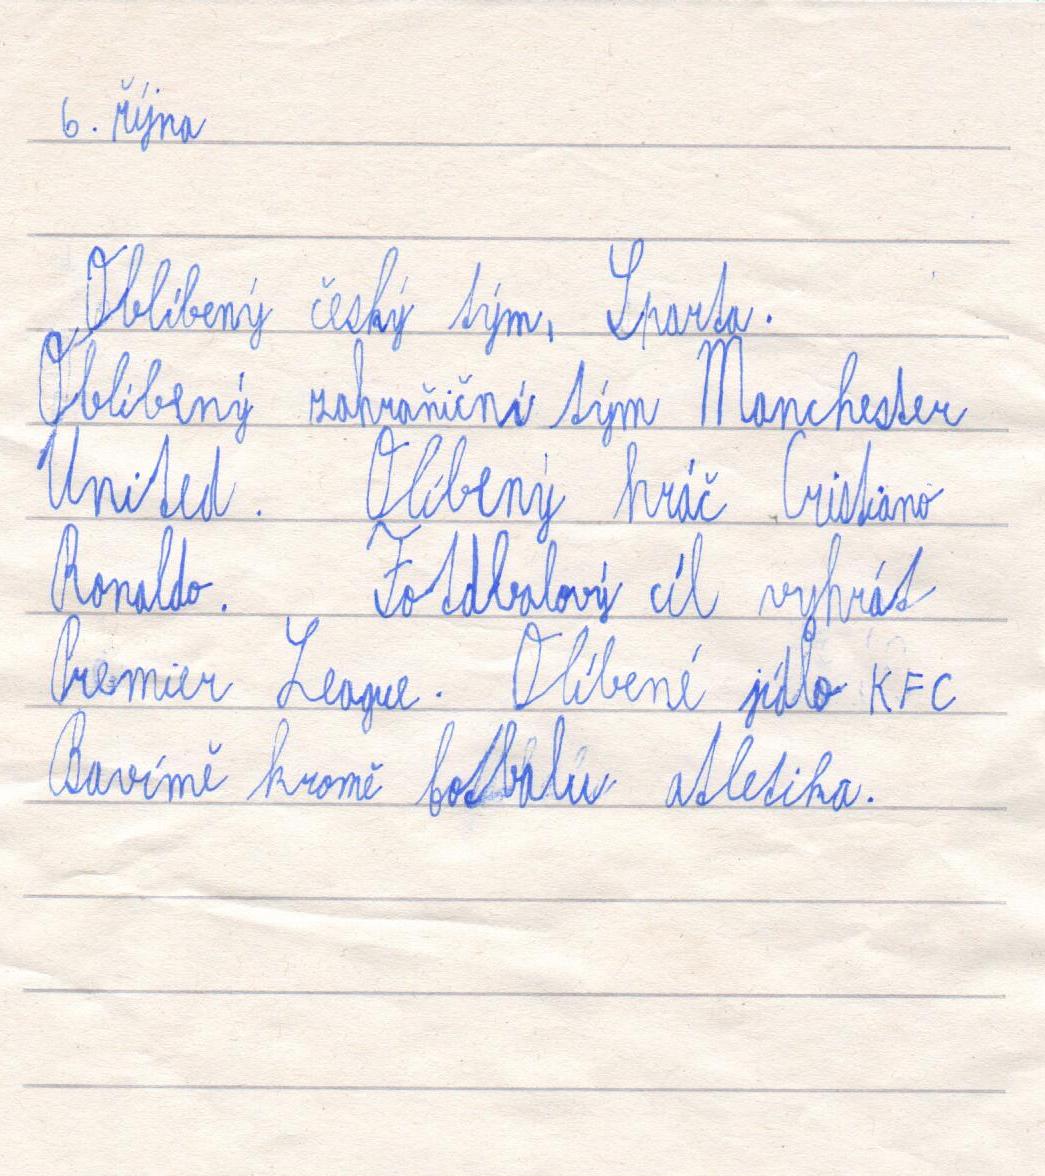 6. října
Oblíbený český tým, Sparta.
Oblíbený zahraňiční tým Manchester
United. Olíbený hráč Cristiano
Ronaldo. Fotdbalový cíl vyhrát
Premier League. Olíbené jídlo KFC
Bavímě kromě fotbalu atletika.